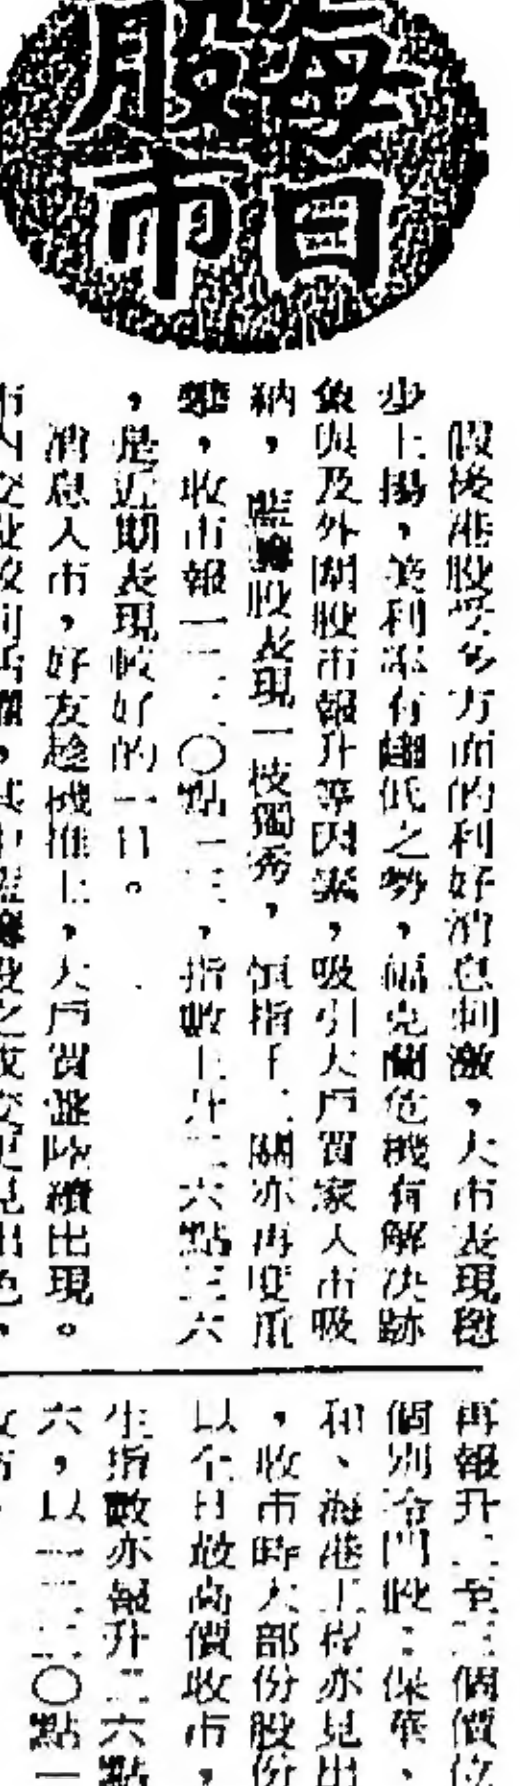 每日
股市
假後港股受多方面的利好消息刺激，大市表現穩
步上揚，美利率有繼低之勢，福克蘭危機有解決跡
象與及外圍股市報升等因素，吸引大戶買家入市吸
納，藍籌股表現一枝獨秀，恒指千二關亦再度重
，收市報一二二〇點一三，指數上升二六點三六
，是近期表現較好的一日。
消息入市，好友趁機推上，大戶買盤陸續出現。
市內交投較前活躍，其中藍籌股之成交更見出色，
再報升二至三個價位
個別冷門股：保華、
和、海港工程亦見出
，收市時大部份股份
以全日最高價收市，
生指數亦報升二六點
六，以一二二〇點一
收市。